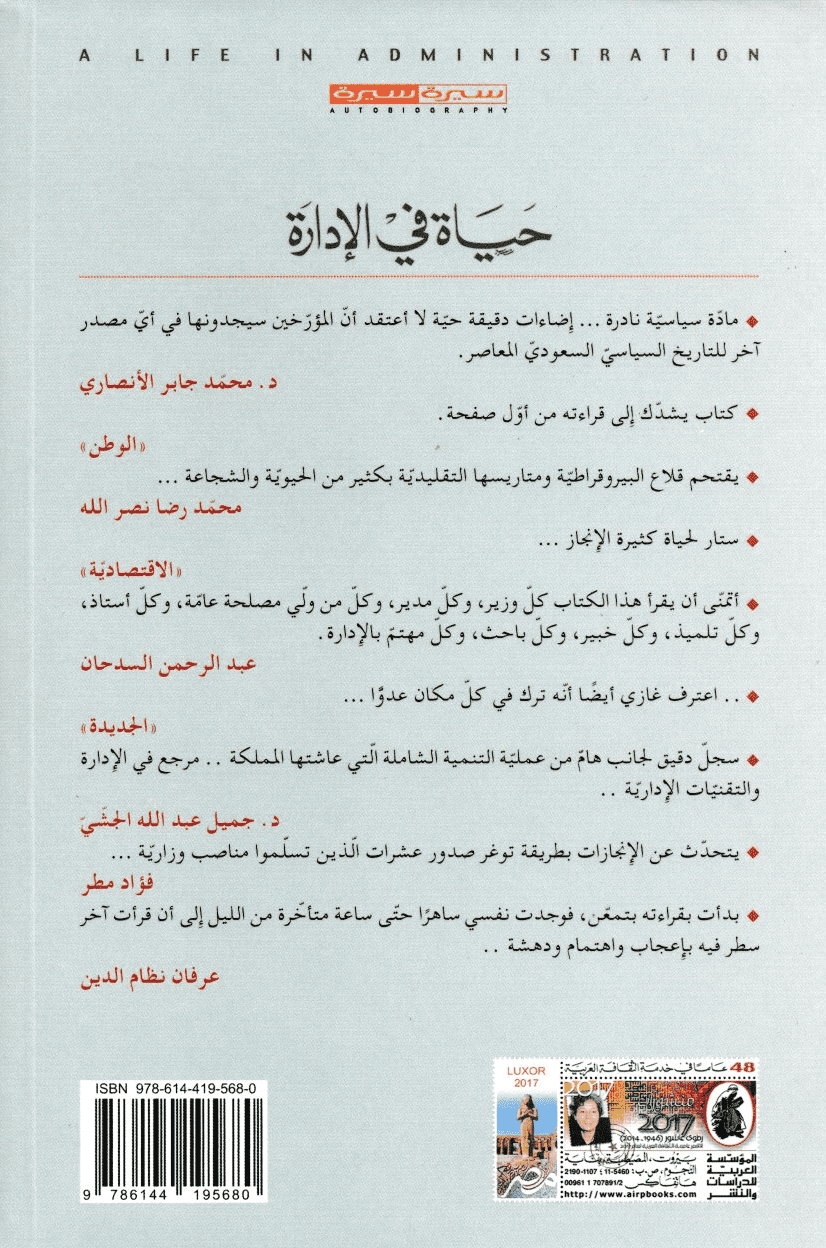 A LIFE IN ADMINISTRATION
سيرة سيرة
AUTOBIOGRAPHY
حَيَاة في الإدارَة
مادّة سياسيّة نادرة ... إضاءات دقيقة حيّة لا أعتقد أنّ المؤرّخين سيجدونها في أيّ مصدر
آخر للتاريخ السياسيّ السعوديّ المعاصر.
د. محمّد جابر الأنصاري
كتاب يشدّك إلى قراءته من أوّل صفحة.
«الوطن»
يقتحم قلاع البيروقراطيّة ومتاريسها التقليديّة بكثير من الحيويّة والشجاعة ...
محمّد رضا نصر الله
ستار لحياة كثيرة الإنجاز ...
«الاقتصاديّة»
أتمنّى أن يقرأ هذا الكتاب كلّ وزير، وكلّ مدير، وكلّ من ولّي مصلحة عامّة، وكلّ أستاذ،
وكلّ تلميذ، وكلّ خبير، وكلّ باحث، وكلّ مهتمّ بالإدارة.
عبد الرحمن السدحان
.. اعترف غازي أيضًا أنّه ترك في كلّ مكان عدوًّا ...
«الجديدة»
سجلّ دقيق لجانب هامّ من عمليّة التنمية الشاملة الّتي عاشتها المملكة .. مرجع في الإدارة
والتقنيّات الإداريّة ..
د. جميل عبد الله الجشّيّ
يتحدّث عن الإنجازات بطريقة توغر صدور عشرات الّذين تسلّموا مناصب وزاريّة ...
فؤاد مطر
بدأت بقراءته بتمعّن، فوجدت نفسي ساهرًا حتّى ساعة متأخّرة من الليل إلى أن قرأت آخر
سطر فيه بإعجاب واهتمام ودهشة ..
عرفان نظام الدين
ISBN 978-614-419-568-0
9 786144 195680
LUXOR
2017
مصر
48 عاما في خدمة الثقافة العربية
2017
2017
رضوى عاشور (1946-2014)
المؤسسة
العربية
للدراسات
والنشر
بيروت، المصيطبة، بناية
النجوم، ص.ب: 5460-11 : 1107-2190
هاتفاكس 00961 1 707891/2
http://www.airpbooks.com